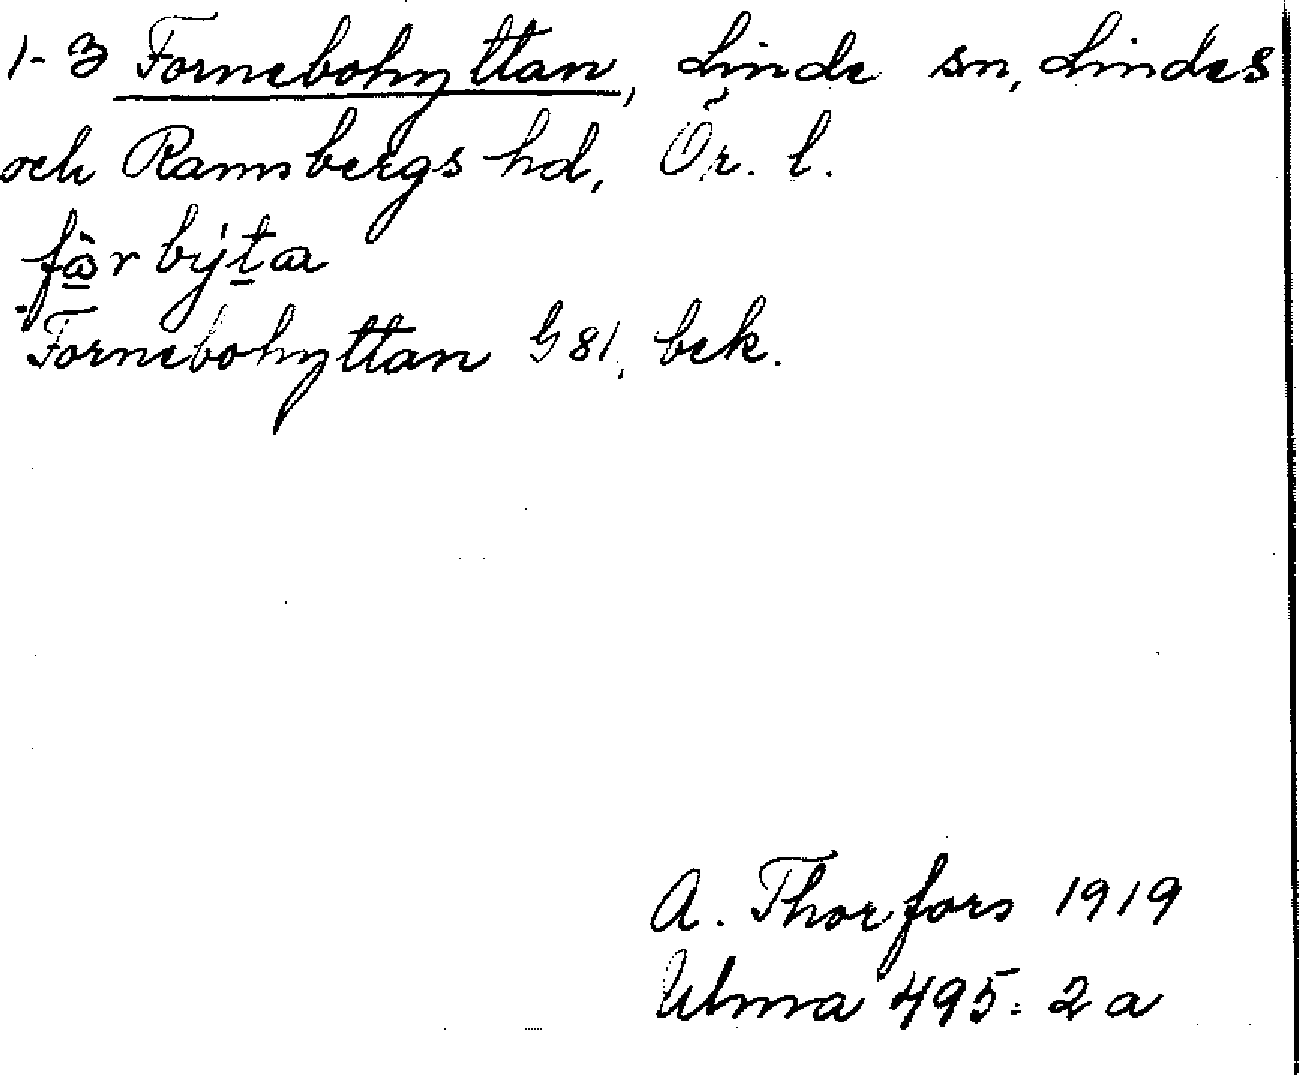 1-3 Fornebohyttan, Linde sn, Lindes
och Ramsbergs hd, Ör. l.
fà̱r bý̱ta
Fornebohyttan G 81, bek.
A. Thorfors 1919
Ulma 495:2a